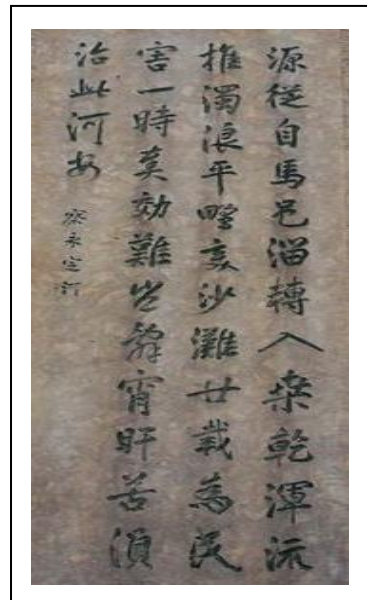 源從自馬邑溜轉入桒乾渾流
推濁浪平野変沙灘廿載為民
害一時奏効難豈辭宵旰苦須
治此河安
察永定河